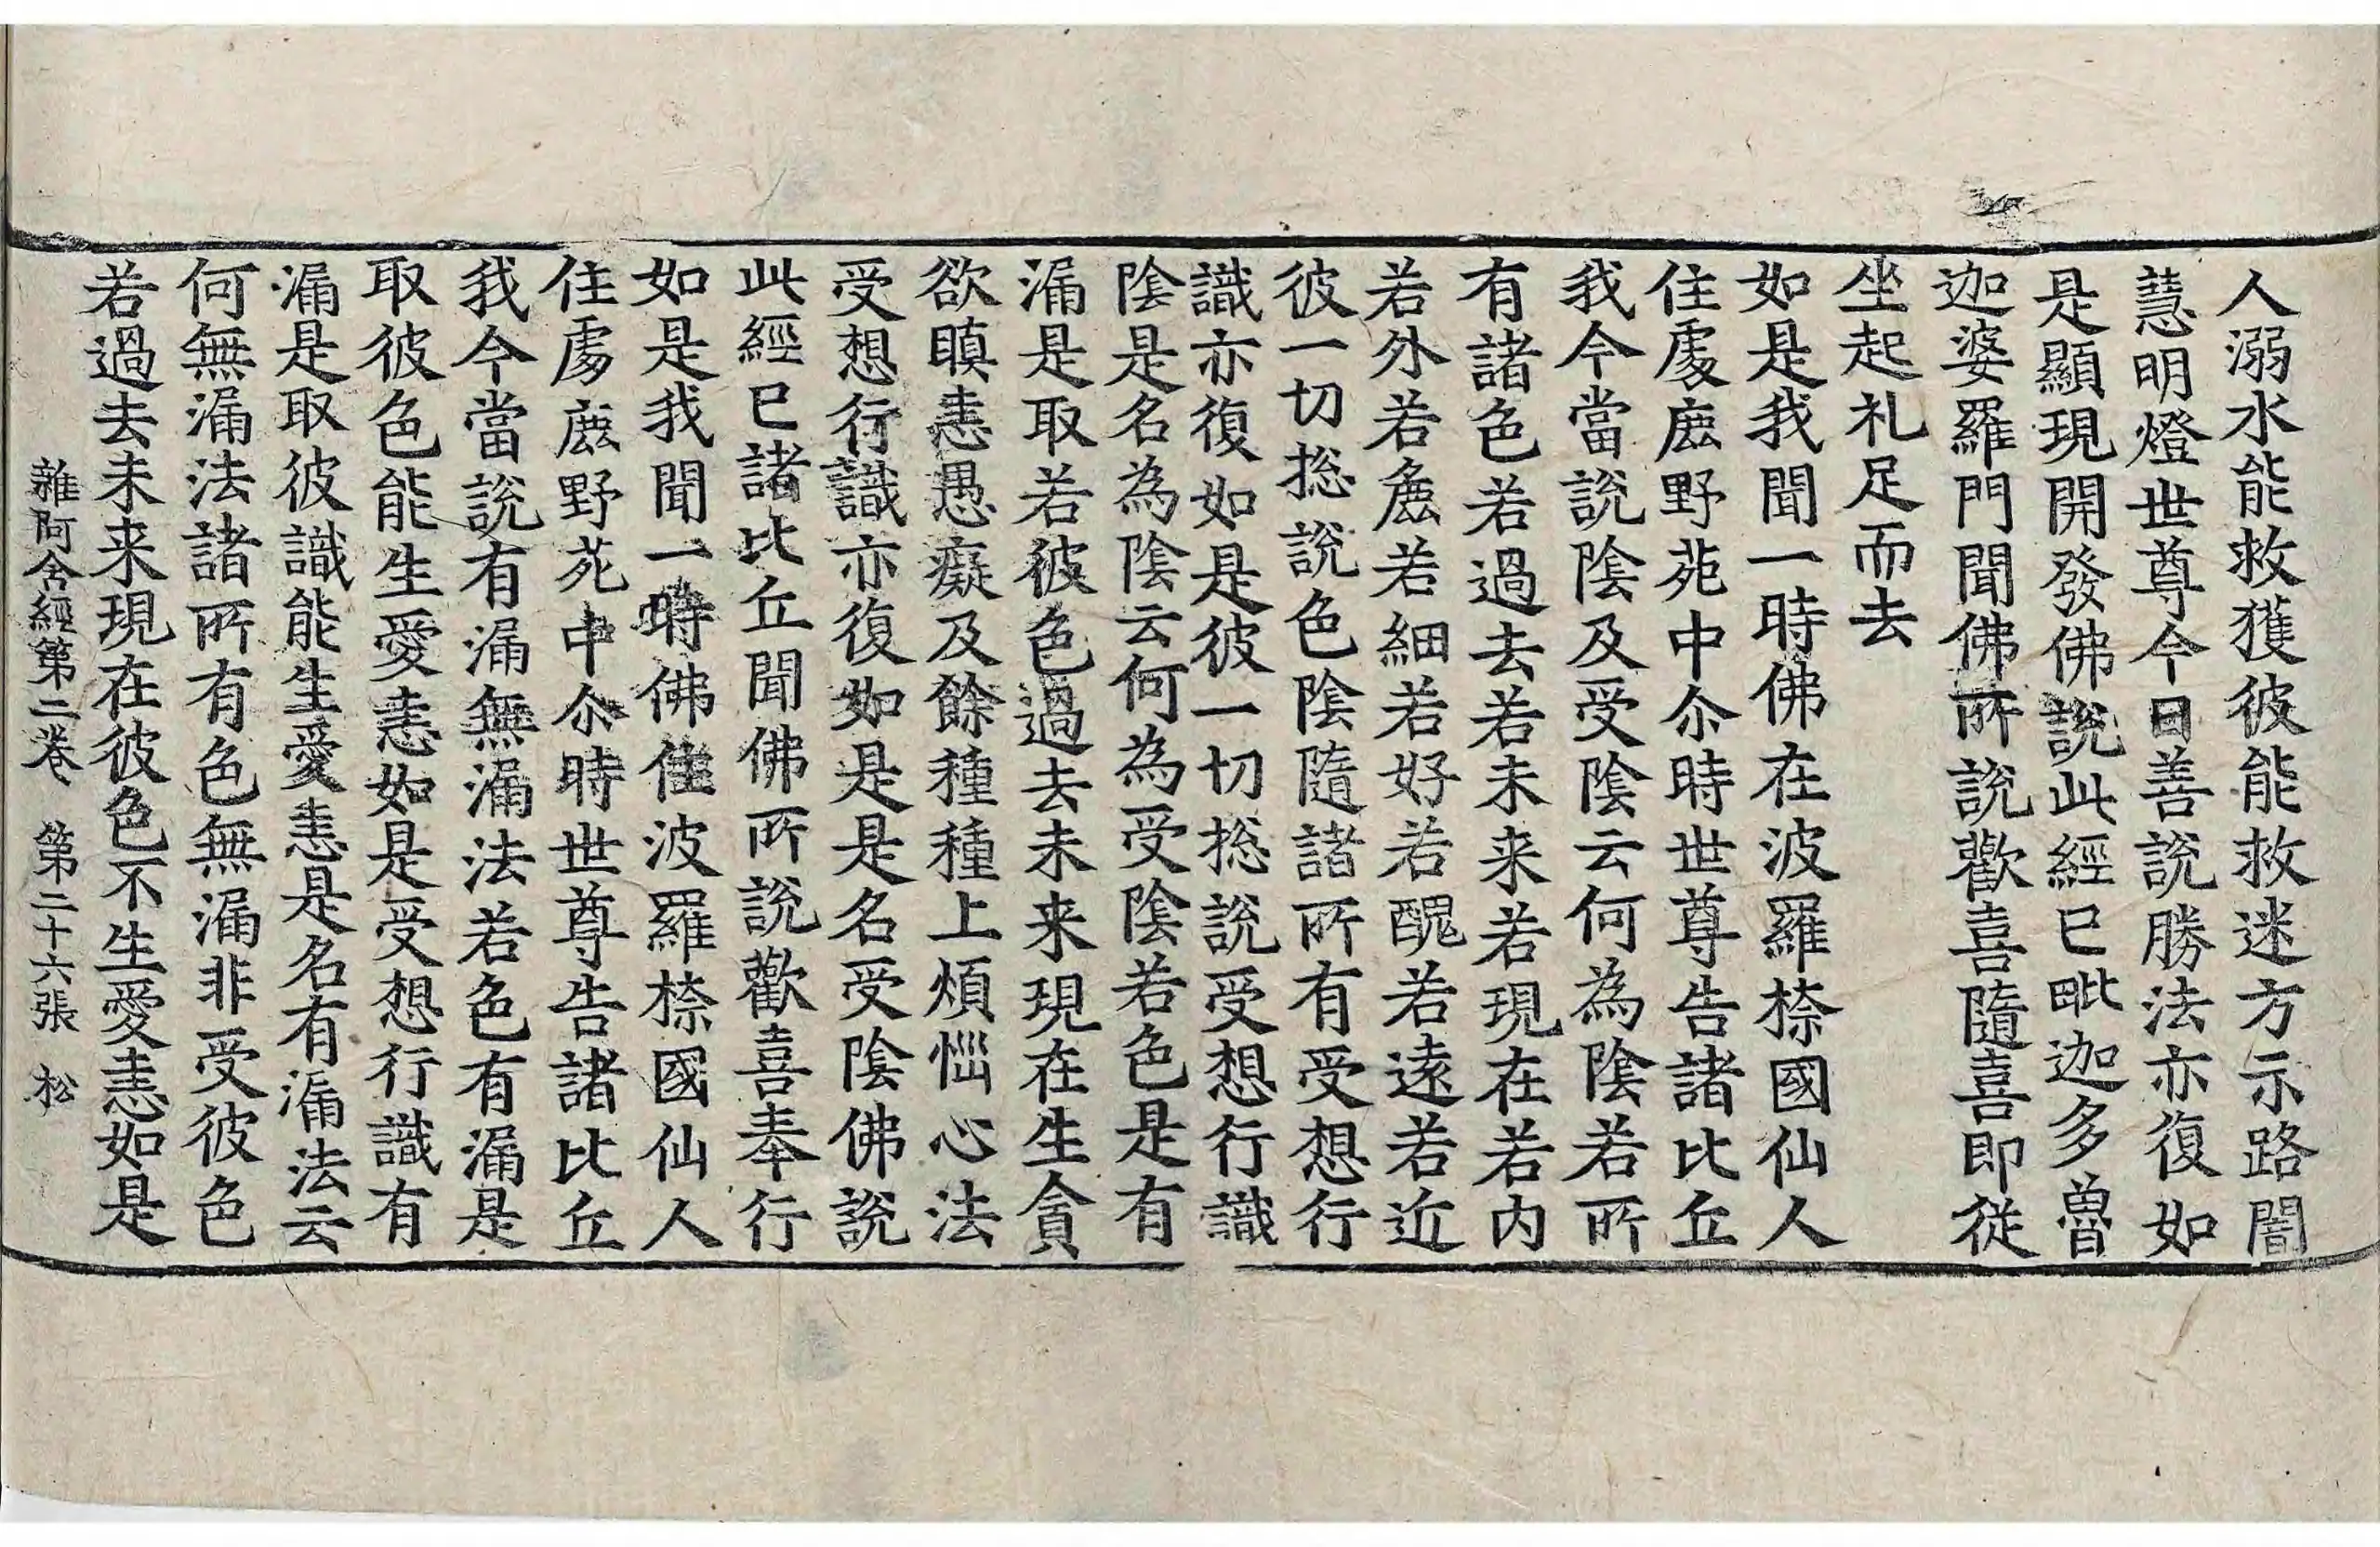 人溺水能救獲彼能救迷方示路闇
慧明燈世尊今日善說勝法亦復如
是顯現開發佛說此經已毗迦多魯
迦婆羅門聞佛所說歡喜隨喜即從
坐起礼足而去
如是我聞一時佛在波羅㮈國仙人
住處鹿野苑中尒時世尊告諸比丘
我今當說陰及受陰云何為陰若所
有諸色若過去若未来若現在若内
若外若麁若細若好若醜若逺若近
彼一切捴說色陰隨諸所有受想行
識亦復如是彼一切捴說受想行識
陰是名為陰云何為受陰若色是有
漏是取若彼色過去未来現在生貪
欲瞋恚愚癡及餘種種上煩惱心法
受想行識亦復如是是名受陰佛說
此經已諸比丘聞佛所說歡喜奉行
如是我聞一時佛住波羅㮈國仙人
住處鹿野苑中尒時世尊告諸比丘
我今當說有漏無漏法若色有漏是
取彼色能生愛恚如是受想行識有
漏是取彼識能生愛恚是名有漏法云
何無漏法諸所有色無漏非受彼色
若過去未来現在彼色不生愛恚如是
雜阿含經第二卷　第二十六張　松